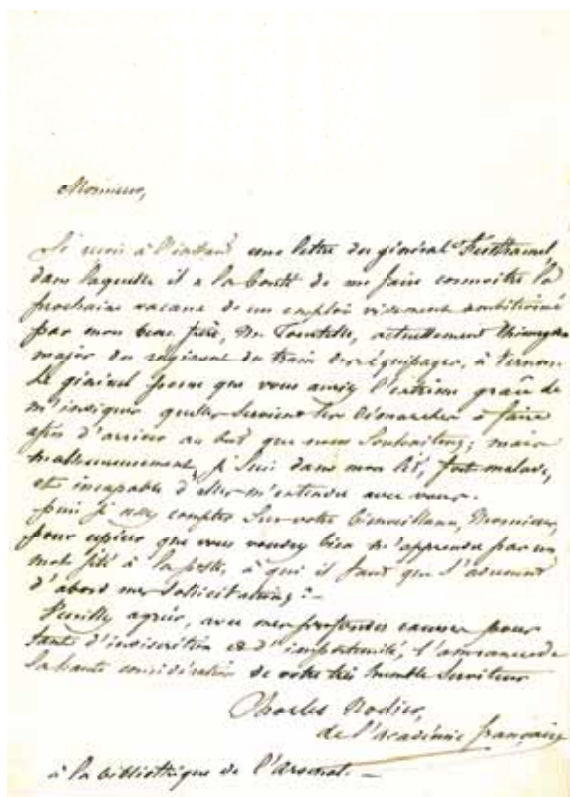 Monsieur,
Je reçois à l'instant une lettre du général
dans laquelle il a la bonté de me faire connoitre la
prochaine vacance de un emploi vivement ambitionné
par mon beau frère, Mr. actuellement chirurgien
major du régiment du train des équipages, à Vernon.
Le général pense que vous auriez l'extrême grâce de
m'indiquer quelles seroient les démarches à faire
afin d'arriver au but que nous souhaitons; mais
malheureusement, je suis dans mon lit, fort malade,
et incapable d'aller m'entendre avec vous.
puis je assez compter sur votre bienveillance, Monsieur,
pour espérer que vous voudrez bien m'apprendre par un
mot jeté à la poste, à qui il faut que s'adressent
d'abord mes sollicitations? —
Veuillez agréer, avec mes profondes excuses pour
tant d'indiscrétion et d'importunité, l'assurance de
la haute considération de votre très humble serviteur
Charles Nodier,
de l'académie françoise
à la bibliothèque de l'Arsenal. —